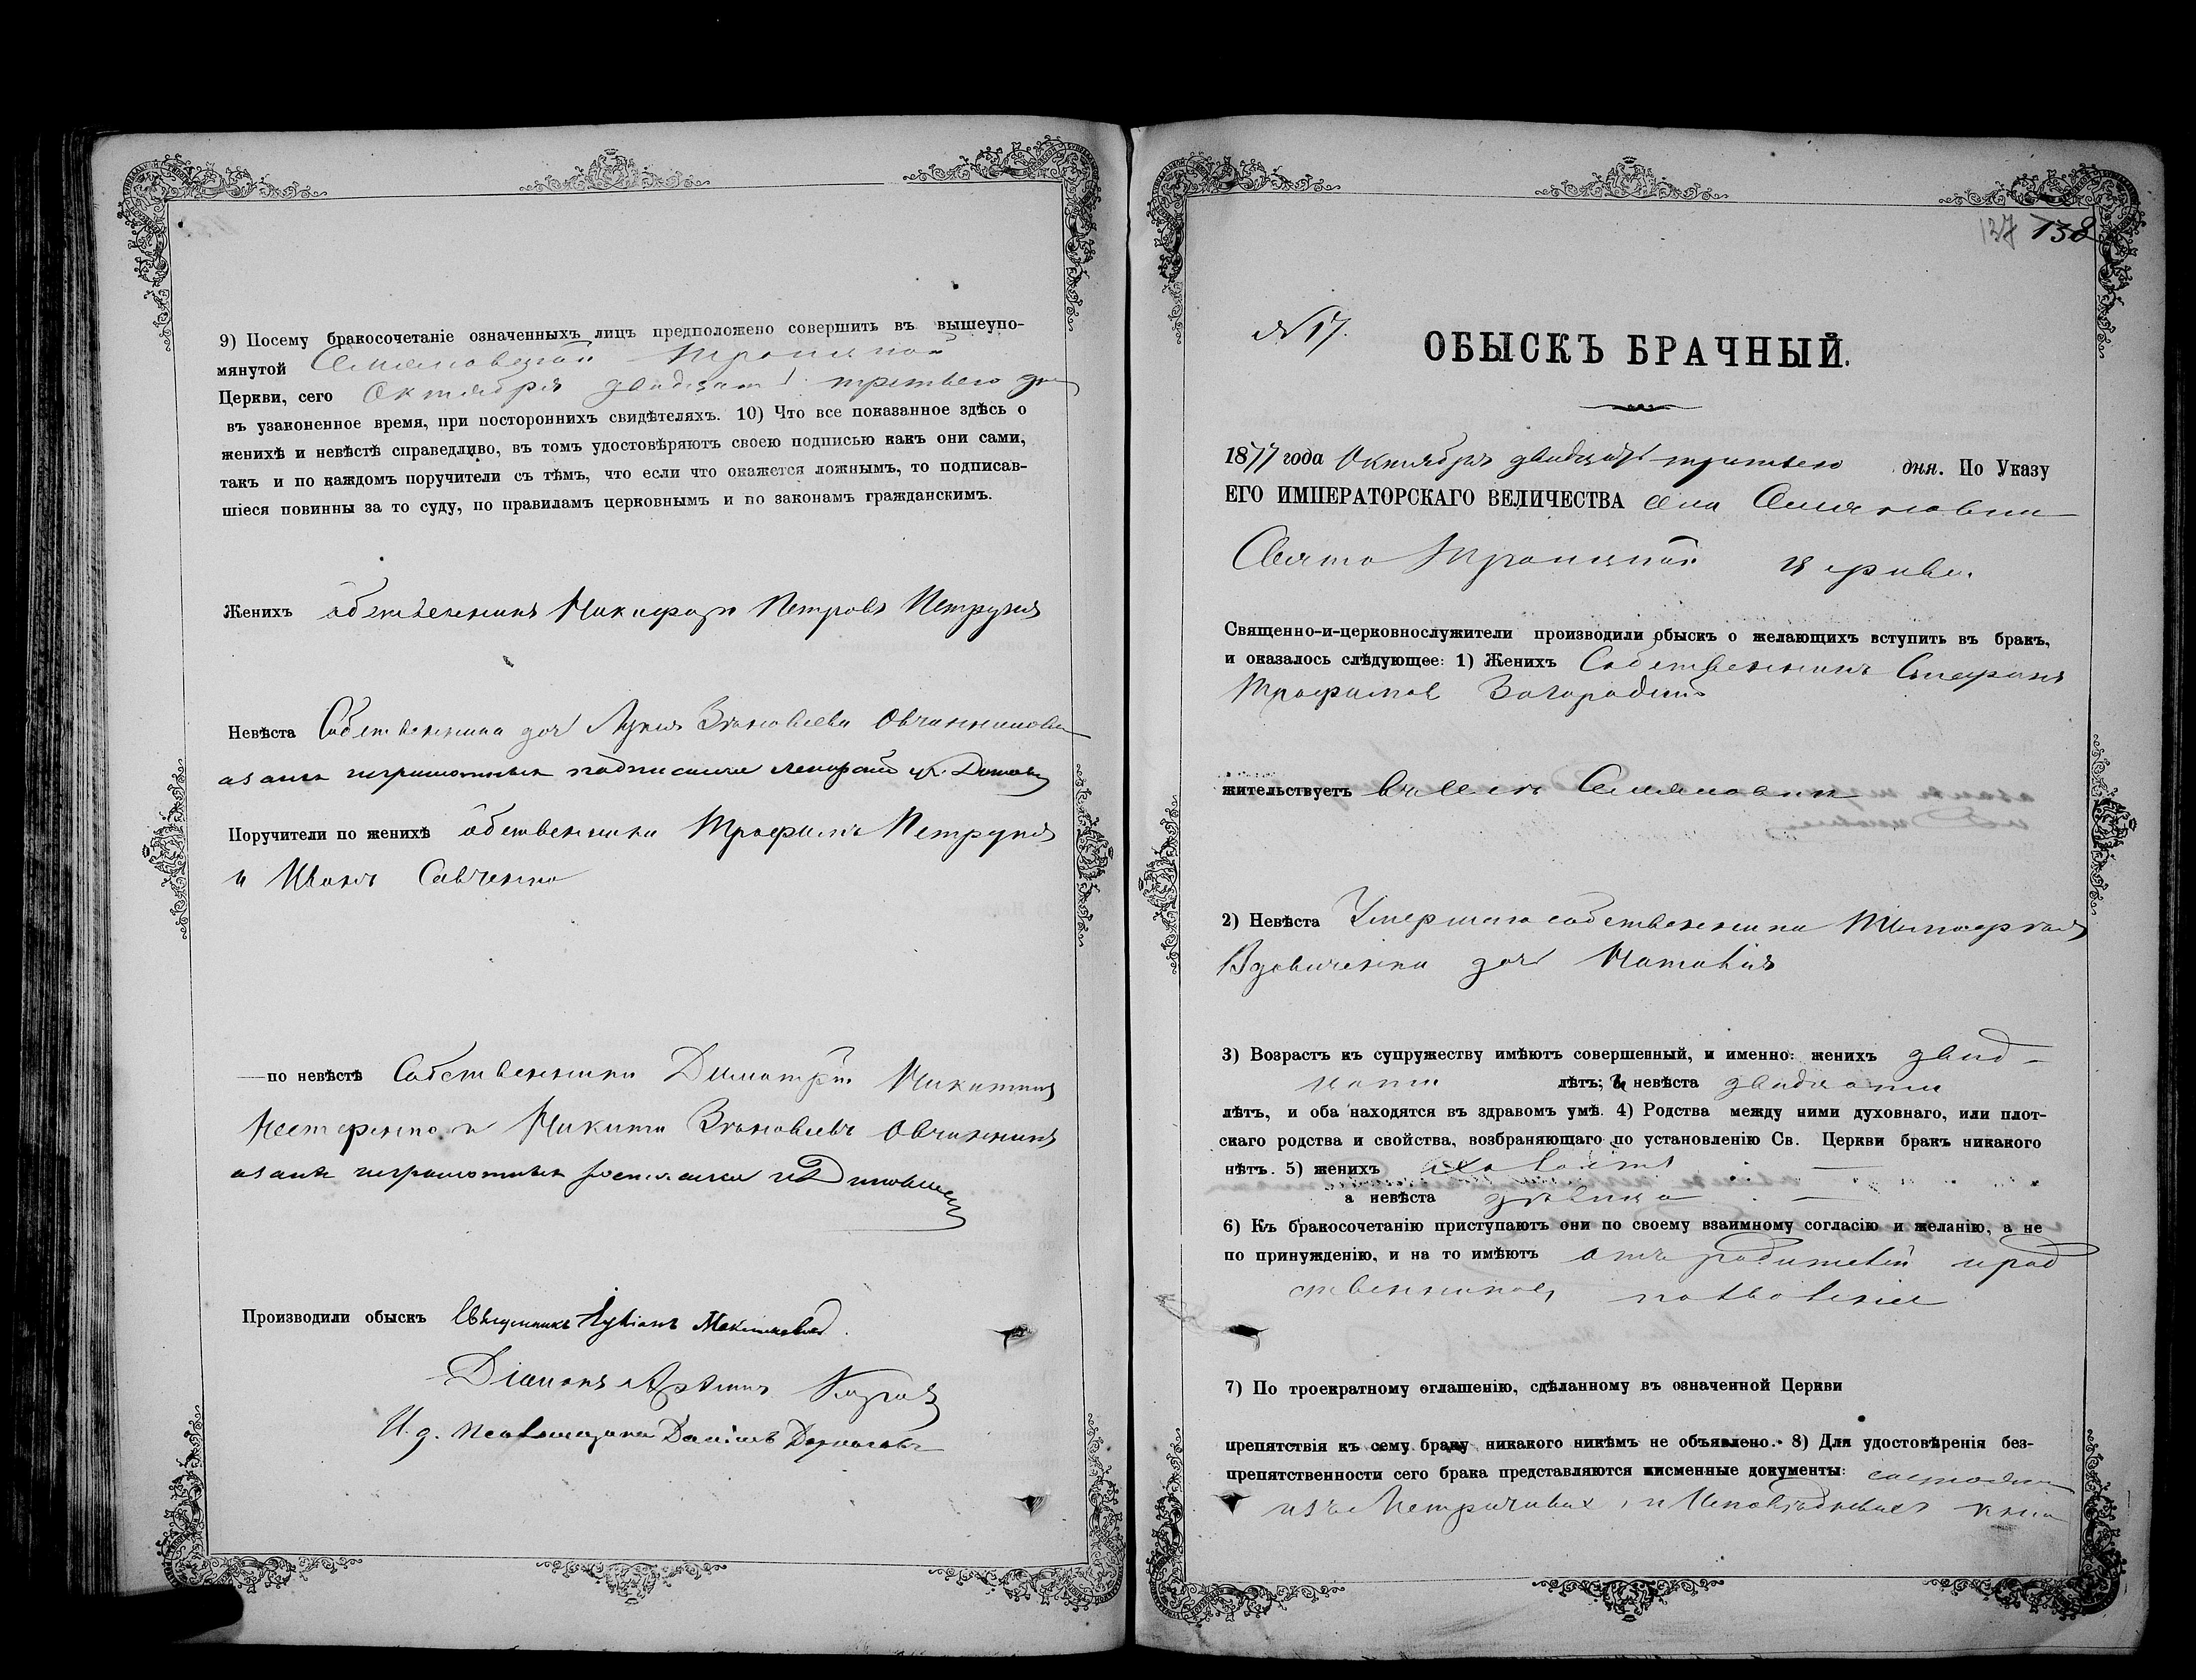 9) Посему бракосочетаніе означенныхъ лицъ предположено совершить въ вышеупо-
мянутой Семяновской Троицкой
Церкви, сего Октября двадцать третьего дня
въ узаконенное время, при постороннихъ свидѣтеляхъ. 10) Что все показанное здѣсь о
женихѣ и невѣстѣ справедливо, въ томъ удостовѣряютъ своею подписью какъ они сами,
такъ и по каждомъ поручители съ тѣмъ, что если что окажется ложнымъ, то подписав-
шіеся повинны за то суду, по правиламъ церковнымъ и по законамъ гражданскимъ.
Женихъ собственникъ Никифоръ Петровъ Петруня
Невѣста Собственника дочь Зѣновіева Овчинникова
неграмотныхъ
Поручители по женихѣ собственники Трофимъ Петруня
и Иванъ Савченко
по невѣстѣ Собственники Димитрій Никитинъ
Нестеренко и Никита Зѣновіевъ Овчинникъ
неграмотныхъ
Производили обыскъ Священникъ Максимовичъ.
Діаконъ
И. д. Псаломщика Даніилъ
137 138
№ 17.
ОБЫСКЪ БРАЧНЫЙ.
1877 года Октября двадцать третьего дня. По Указу
ЕГО ИМПЕРАТОРСКАГО ВЕЛИЧЕСТВА села Семяновки
Свято Троицкой церкви.
Священно-и-церковнослужители производили обыскъ о желающихъ вступить въ бракъ,
и оказалось слѣдующее: 1) Женихъ Собственникъ Стефанъ
Трофимов Загородній
жительствуетъ въ селѣ Семяновки
2) Невѣста Умершаго собственника Тимофея
Вдовиченка дочь Наталія
3) Возрастъ къ супружеству имѣютъ совершенный, и именно: женихъ двад-
цати лѣтъ; а невѣста двадцати
лѣтъ, и оба находятся въ здравомъ умѣ. 4) Родства между ними духовнаго, или плот-
скаго родства и свойства, возбраняющаго по установленію Св. Церкви бракъ никакого
нѣтъ. 5) женихъ холостъ
а невѣста дѣвица
6) Къ бракосочетанію приступаютъ они по своему взаимному согласію и желанію, а не
по принужденію, и на то имѣютъ отъ родителей и род
ственниковъ позволеніе
7) По троекратному оглашенію, сдѣланному въ означенной Церкви
препятствія къ сему браку никакого никѣмъ не объявлено. 8) Для удостовѣренія без-
препятственности сего брака представляются писменные документы:
изъ Метрическихъ и Исповѣдныхъ книгъ